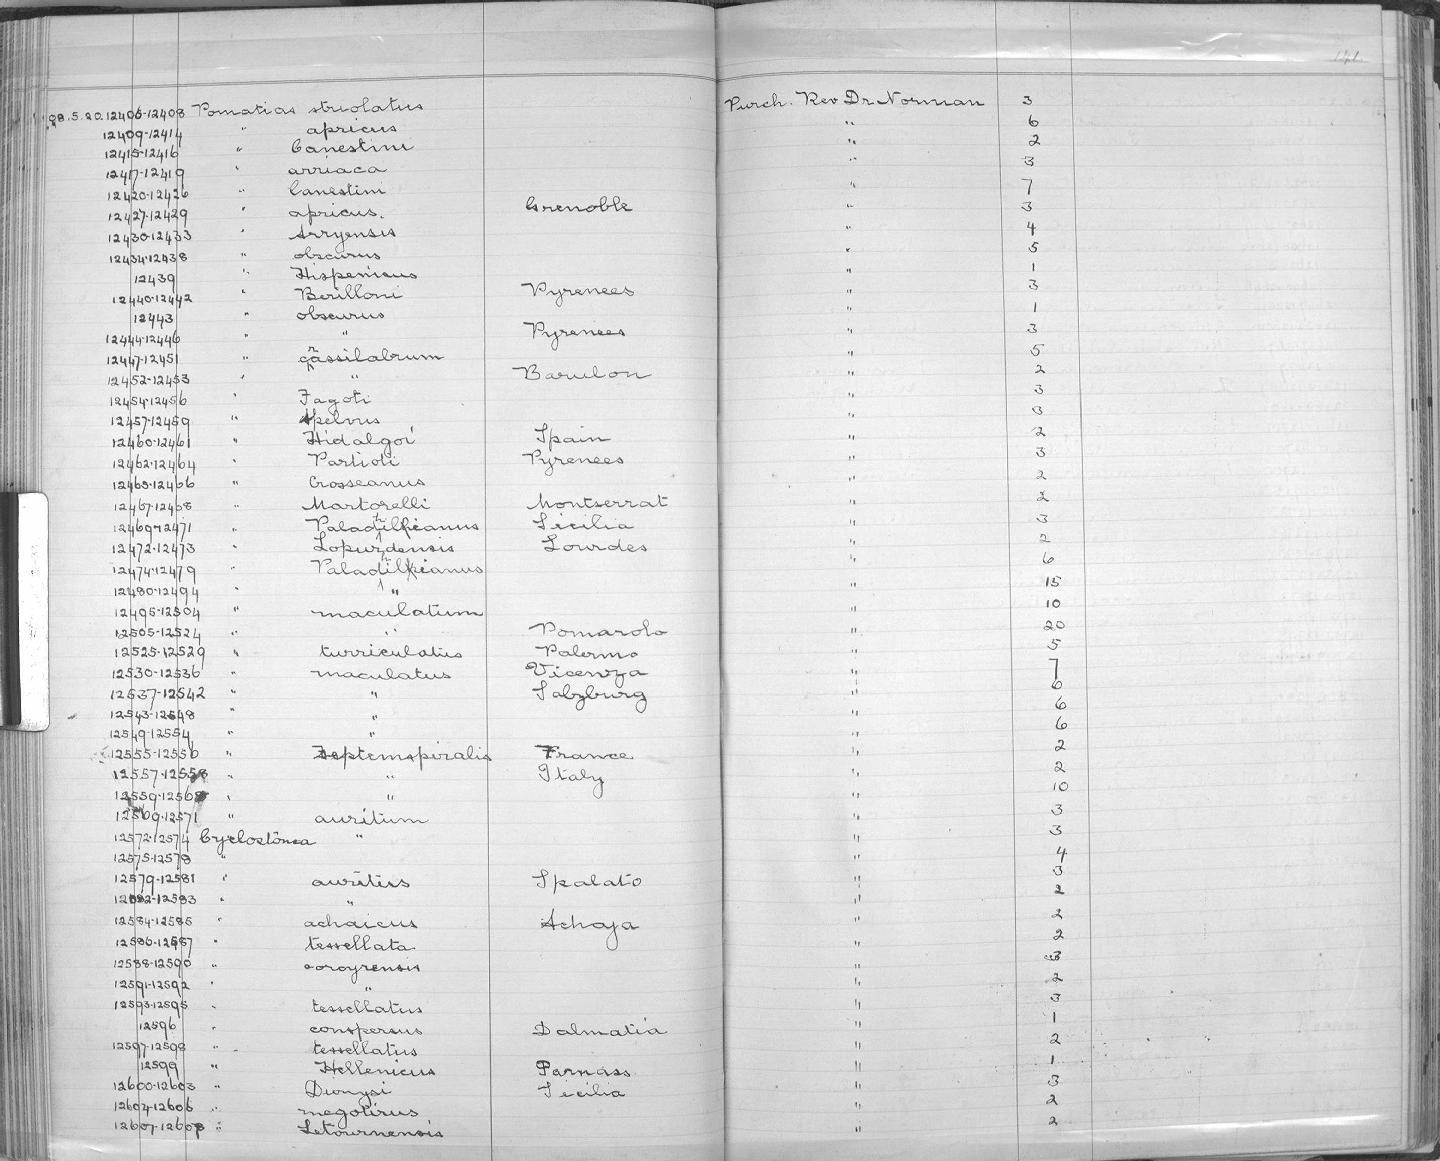 98.5.20.12406-12408 Pomatias striolatus Purch. Rev Dr Norman 3
12409-12414 " apricus " 6
12415-12416 " Canestrini " 2
12417-12419 " arriaca " 3
12420-12426 " Canestini " 7
12427-12429 " apricus. Grenoble " 3
12430-12433 " Arryensis " 4
12434-12438 " obscurus " 5
12439 " Hispanicus " 1
12440-12442 " Berilloni Pyrenees " 3
12443 " obscurus " 1
12444-12446 " " Pyrenees " 3
12447-12451 " crassilabrum " 5
12452-12453 " " " 2
12454-12456 " Fagoti " 3
12457-12459 " spelvus " 3
12460-12461 " Hidalgoi Spain " 2
12462-12464 " Partioti Pyrenees " 3
12465-12466 " Crosseanus " 2
12467-12468 " Martorelli Montserrat " 2
12469-12471 " Sicilia " 3
12472-12473 " Lourdes " 2
12474-12479 " " 6
12480-12494 " " " 15
12495-12504 " maculatum " 10
12505-12524 " " Pomarolo " 20
12525-12529 " turriculatus Palermo " 5
12530-12536 " maculatus Vicenza " 7
12537-12542 " " Salzburg " 6
12543-12548 " " " 6
12549-12554 " " " 6
12555-12556 " septemspiralis France " 2
12557-12558 " " Italy " 2
12559-12568 " " " 10
12569-12571 " auritum " 3
12572-12574 Cyclostoma " " 3
12575-12578 " " 4
12579-12581 " auritus Spalato " 3
12582-12583 " " " 2
12584-12585 " achaicus Achaja " 2
12586-12587 " tessellata " 2
12588-12590 " corcyrensis " 3
12591-12592 " " " 2
12593-12595 " tessellatus " 3
12596 " conspersus Dalmatia " 1
12597-12598 " tessellatus " 2
12599 " Hellenicus Parnass " 1
12600-12603 " Dionysi Sicilia " 3
12604-12606 " megotirus " 2
12607-12608 " Letournensis " 2